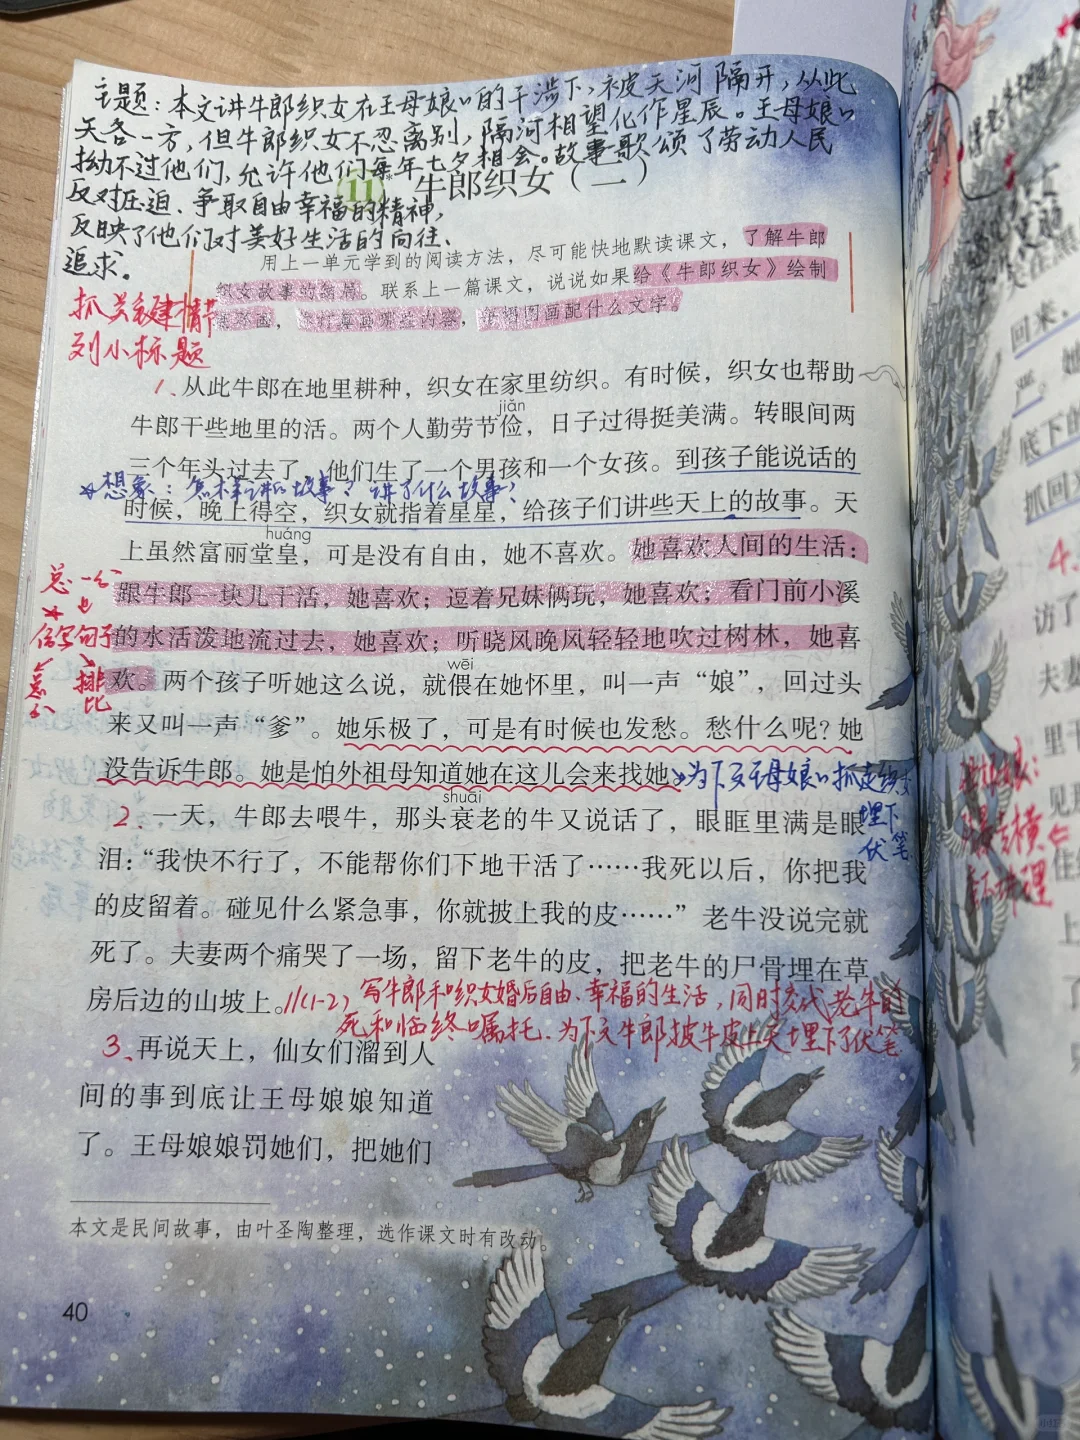 主题：本文讲牛郎织女在王母娘娘的干涉下，被天河隔开，从此
天各一方，但牛郎织女不忍离别，隔河相望化作星辰。王母娘娘
拗不过他们，允许他们每年七夕相会。故事歌颂了劳动人民
反对压迫、争取自由幸福的精神，
反映了他们对美好生活的向往、
追求。
11* 牛郎织女（二）
用上一单元学到的阅读方法，尽可能快地默读课文，了解牛郎
织女故事的结局。联系上一篇课文，说说如果给《牛郎织女》绘制
连环画，
，每幅图画配什么文字。
抓关键情节
列小标题
1、从此牛郎在地里耕种，织女在家里纺织。有时候，织女也帮助
jiǎn
牛郎干些地里的活。两个人勤劳节俭，日子过得挺美满。转眼间两
三个年头过去了，他们生了一个男孩和一个女孩。到孩子能说话的
想象：怎样讲的故事？讲了什么故事？
时候，晚上得空，织女就指着星星，给孩子们讲些天上的故事。天
huáng
上虽然富丽堂皇，可是没有自由，她不喜欢。她喜欢人间的生活：
跟牛郎一块儿干活，她喜欢；逗着兄妹俩玩，她喜欢；看门前小溪
的水活泼地流过去，她喜欢；听晓风晚风轻轻地吹过树林，她喜
总一分
仿写句子
排比
wēi
欢。两个孩子听她这么说，就偎在她怀里，叫一声“娘”，回过头
来又叫一声“爹”。她乐极了，可是有时候也发愁。愁什么呢？她
没告诉牛郎。她是怕外祖母知道她在这儿会来找她。
为下文王母娘娘抓走织女
埋下
伏笔
shuāi
2、一天，牛郎去喂牛，那头衰老的牛又说话了，眼眶里满是眼
泪：“我快不行了，不能帮你们下地干活了……我死以后，你把我
的皮留着。碰见什么紧急事，你就披上我的皮……”老牛没说完就
死了。夫妻两个痛哭了一场，留下老牛的皮，把老牛的尸骨埋在草
房后边的山坡上。//(1-2) 写牛郎和织女婚后自由、幸福的生活，同时交代老牛的
死和临终嘱托，为下文牛郎披牛皮上天埋下了伏笔
3、再说天上，仙女们溜到人
间的事到底让王母娘娘知道
了。王母娘娘罚她们，把她们
本文是民间故事，由叶圣陶整理，选作课文时有改动。
40
回来，
严。她
底下的
抓回
4、
访了
夫妻
里干
见那
住
上